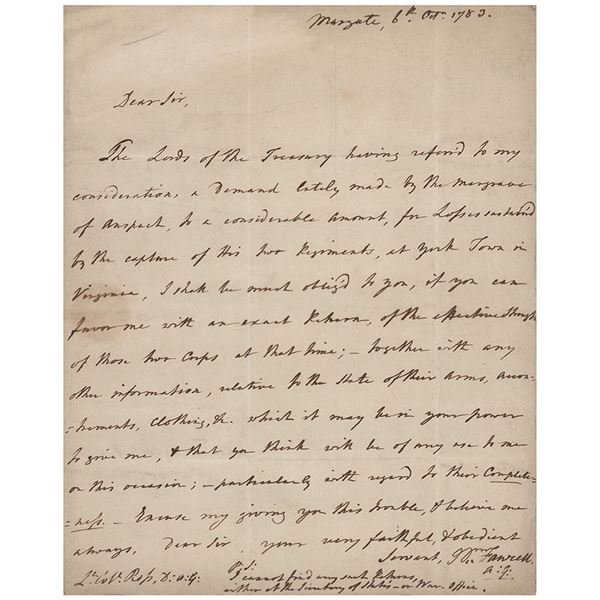 Margate, 6th. Octr. 1783.
Dear Sir,
The Lords of the Treasury having refer'd to my
consideration, a Demand lately made by the Margrave
of Anspach, to a considerable amount, for Losses sustain'd
by the capture of His two Regiments, at York Town in
Virginia, I shall be much oblig'd to you, if you can
favor me with an exact Return, of the effective strength
of those two Corps at that time; – together with any
other information, relative to the State of their Arms, accou-
-trements, Clothing, &c. which it may be in your power
to give me, & that you think will be of any use to me
on this occasion; – particularly with regard to their Complete-
-ness. – Excuse my giving you this trouble, & believe me
always, Dear Sir, your very faithful, & obedient
Servant, Wm. Fawcett.
A: G:
Lt. Colo. Ross, D: A: G:
P.S:
I cannot find any such Returns,
either at the Secretary of State's or War Office.